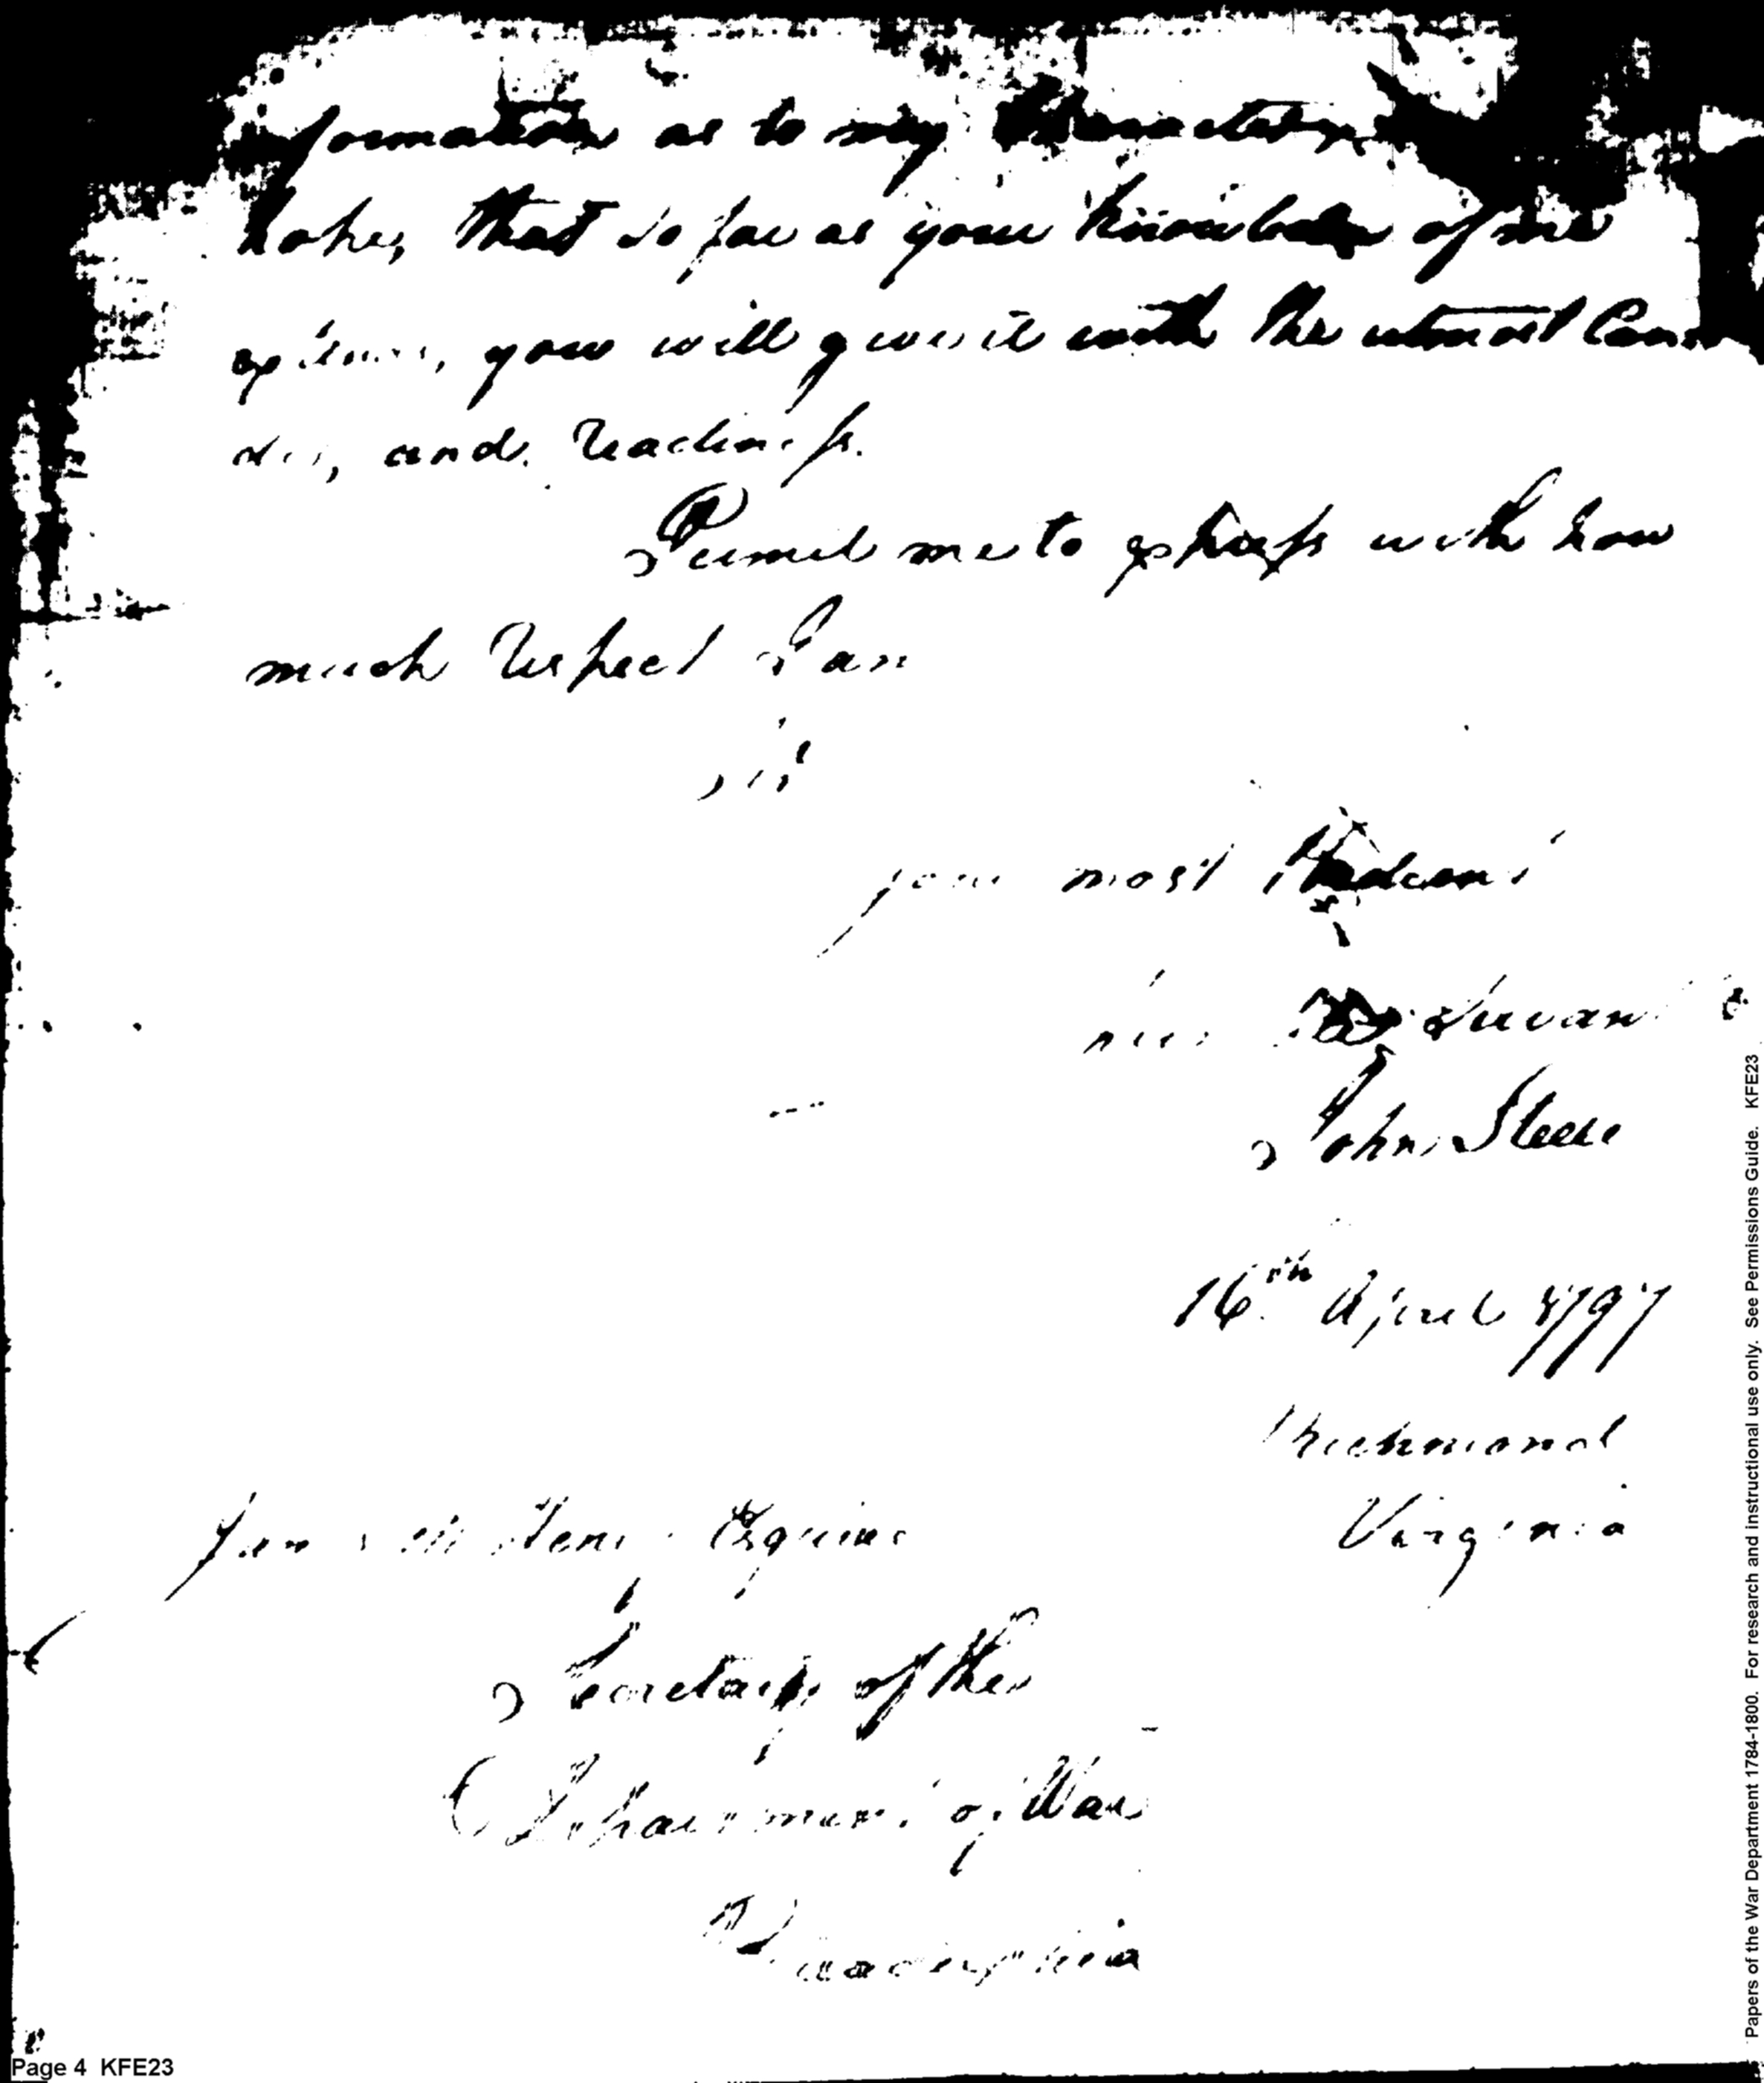 information as to my Character,
hopes, that so far as your knowledge of me
extends, you will give it with the utmost Can
dor, and readiness.
Permit me to express with how
much respect I am
Sir
your most Obedient
Servant
John Steele
16th April 1797
Richmond
Virginia
James McHenry Esquire
Secretary of the
Department of War
Philadelphia
Page 4 KFE23
Papers of the War Department 1784-1800. For research and instructional use only. See Permissions Guide. KFE23